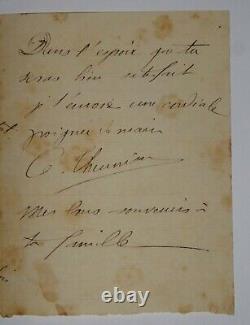 Dans l'espoir que tu
seras bien satisfait
je t'envoie une cordiale
poignée de main
Mes bons souvenirs à
ta famille
ebay